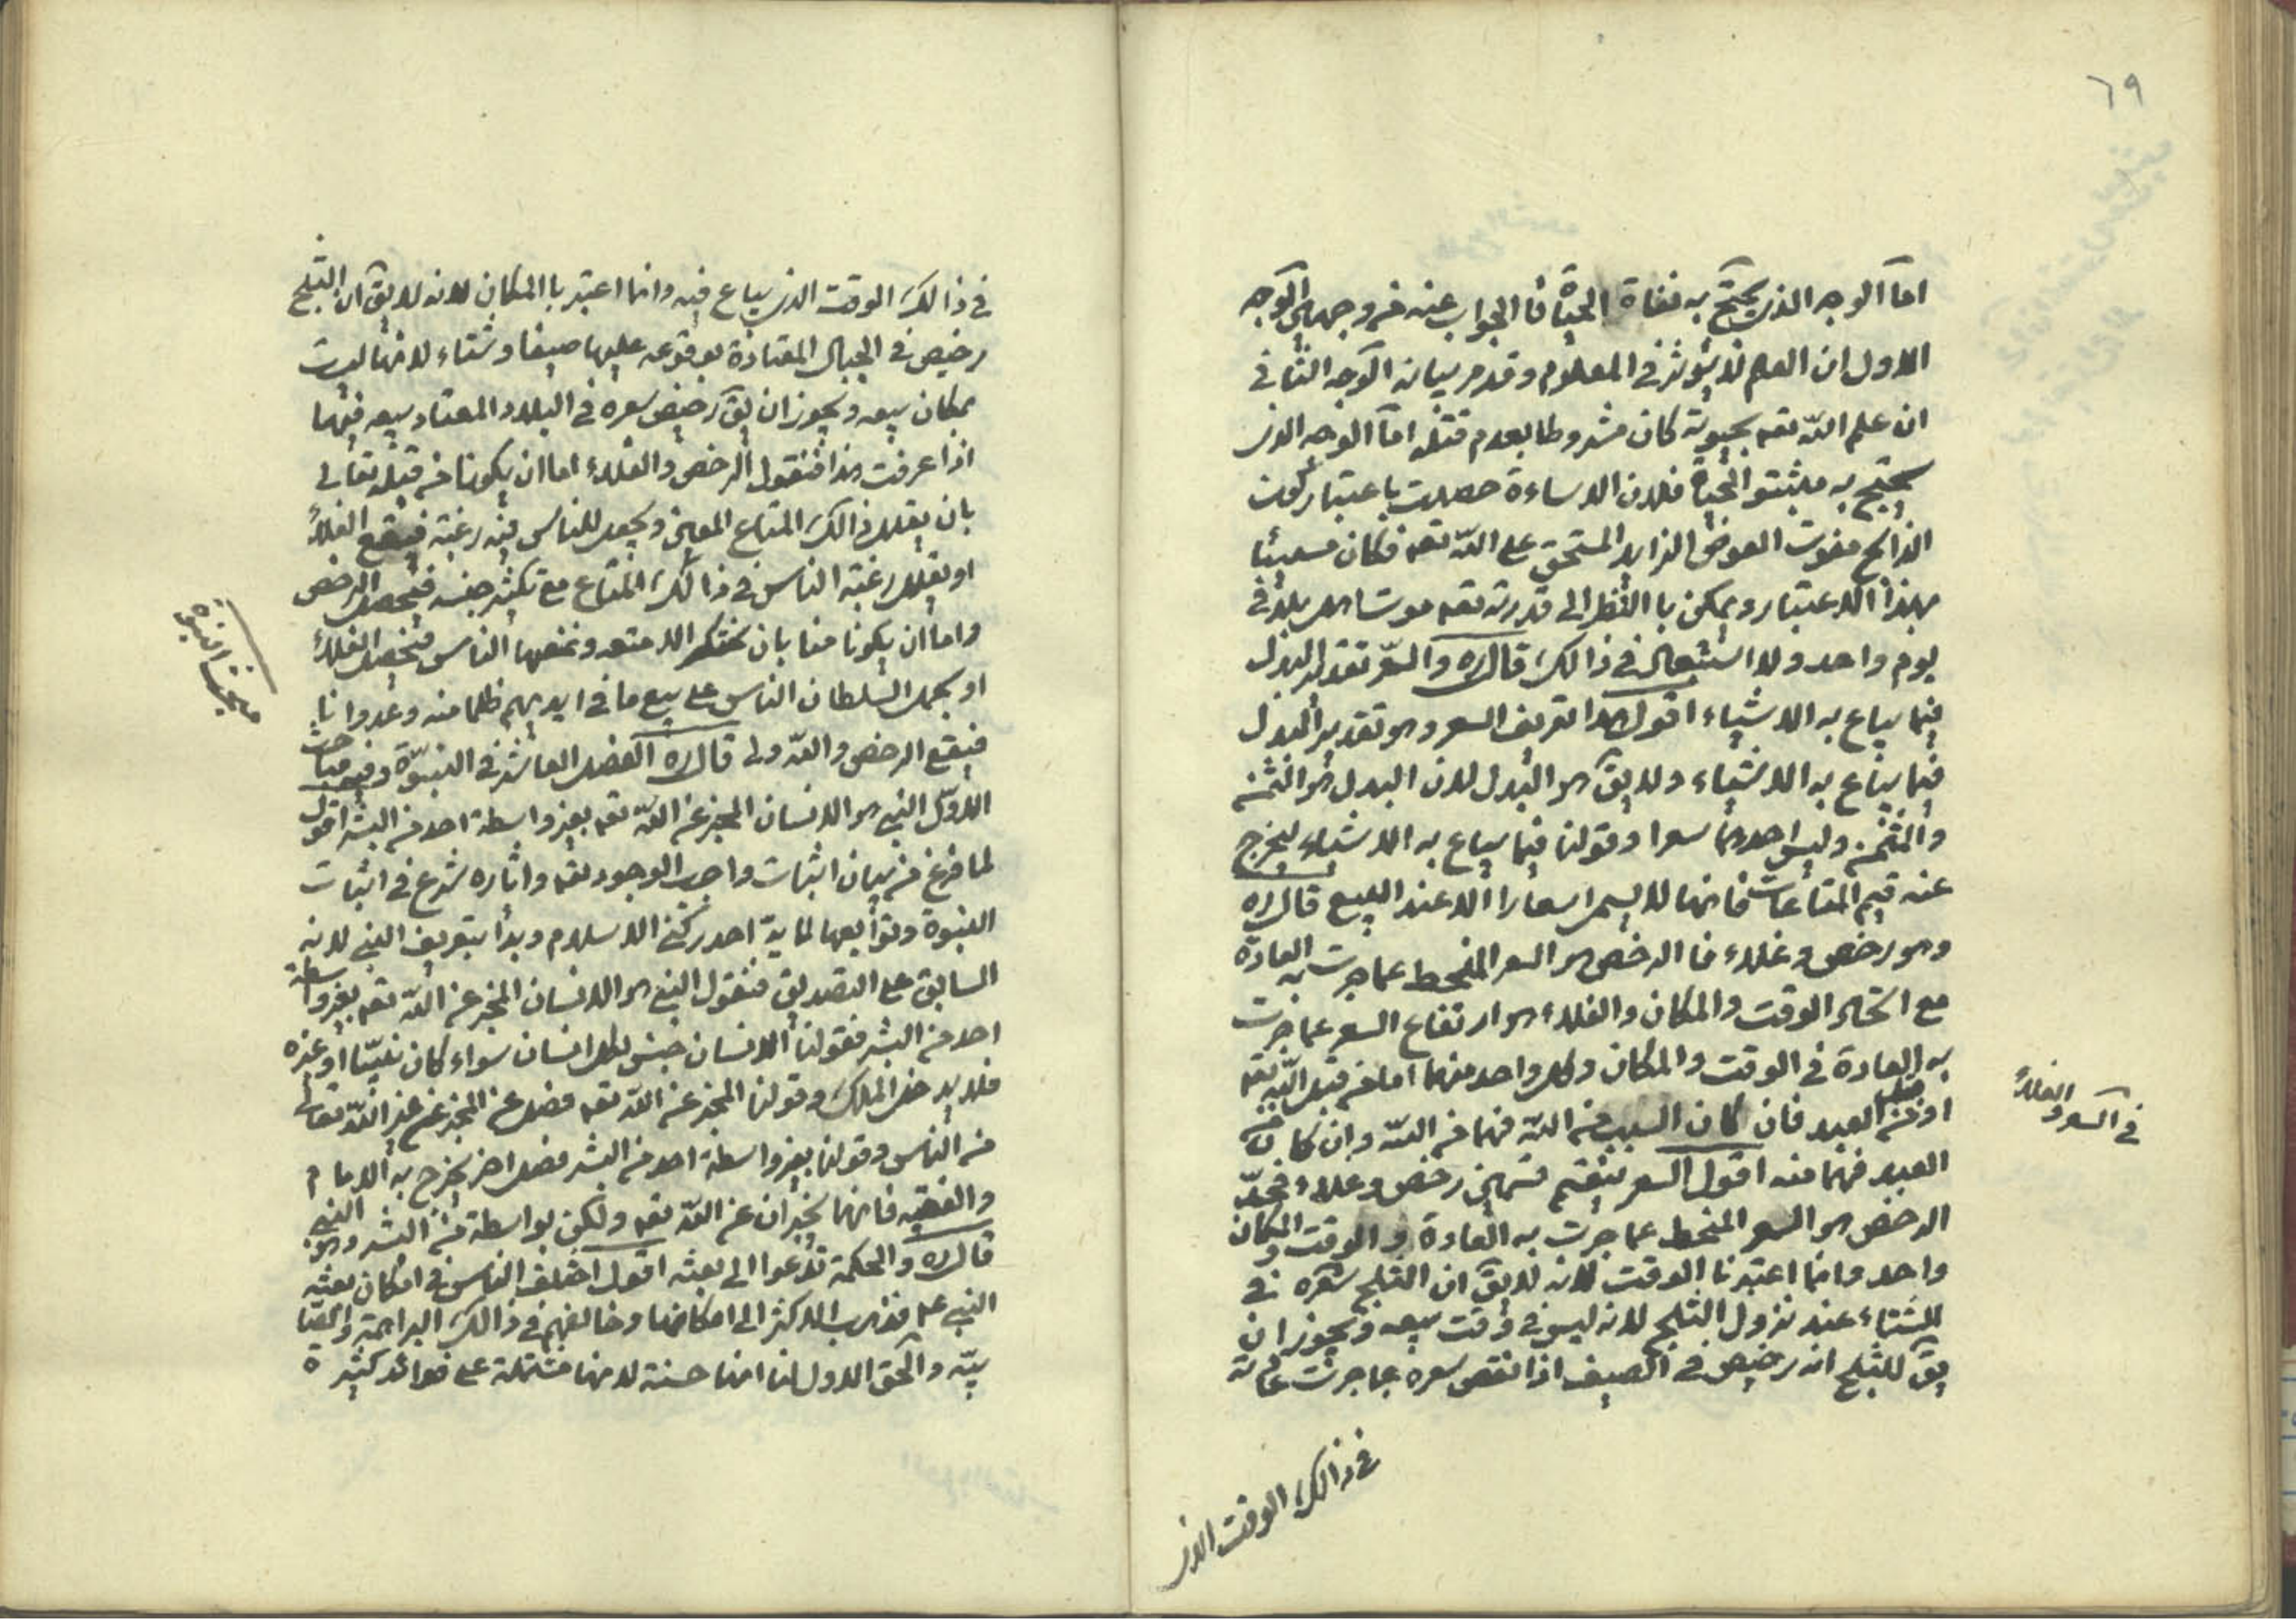 ٦٩
اما الوجه الذى يحتج به نفاة الحياة فا الجواب عنه من وجهين الوجه
الاول ان العلم لا يؤثر فى المعلوم وقد مر بيانه الوجه الثانى
ان علم الله تعه بحيوته كان مشروطا بعدم قتله اما الوجه الذى
يحتج به مثبتو الحياة فلان الاساءة حصلت باعتبار كون
الذابح مفوت العوض الزايد المستحق على الله تعه فكان مسيئا
بهذا الاعتبار ويمكن با النظر الى قدرته تعه موت اهل بلد فى
يوم واحد ولا استبعال فى ذالك قال ره والسعر تقدير البدل
فيما يباع به الاشياء اقول هذا تعريف السعر وهو تقدير البدل
فيما يباع به الاشياء ولا يق هو البدل لان البدل هو الثمن
والمثمن وليس احدهما سعرا وقولنا فيما يباع به الاشياء ليخرج
عنه قيم المتاعات فانها لا يسمى اسعارا الا عند البيع قال ره
وهو رخص وغلاء فا الرخص هو السعر المنحط عما جرت به العادة
مع اتحاد الوقت والمكان والغلاء هو ارتفاع السعر عما جرت
به العادة فى الوقت والمكان وكل واحد منهما اما من قبل الله تعه
او من قبل العبد فان كان السبب من الله فهما من الله وان كان من
العبد فهما منه اقول السعر ينقسم قسمين رخص وغلاء فحد
الرخص هو السعر المنحط عما جرت به العادة و الوقت والمكان
واحد وانما اعتبرنا الوقت لانه لا يق ان الثلج سعره فى
الشتاء عند نزول الثلج لانه ليس فى وقت بيعه ويجوز ان
يق للثلج انه رخيص فى الصيف اذا نقص سعره عما جرت عادته
فى ذالك الوقت الذى
فى السعر والغلاء
فى ذالك الوقت الذى يباع فيه وانما اعتبر با المكان لانه لا يق ان الثلج
رخيص فى الجبال المعتادة بوقوعه عليها صيفا وشتاء لانها ليست
بمكان بيعه ويجوز ان يق رخيص سعره فى البلاد المعتاد بيعه فيها
اذا عرفت هذا فنقول الرخص والغلاء اما ان يكونا من قبله تعالى
بان يقلل ذالك المتاع المعين ويجعل للناس فيه رغبة فيقع الغلاء
او يقلل رغبة الناس فى ذالك المتاع مع تكثير جنسه فيحصل الرخص
واما ان يكونا منا بان نحتكر الامتعه ونمنعها الناس فيحصل الغلاء
او يحمل السلطان الناس على بيع ما فى ايديهم ظلما منه وعدوانا
فيقع الرخص والله ولى قال ره الفصل العاشر فى النبوة وفيه مباحث
الاول النبى هو الانسان المخبر عن الله تعه بغير واسطة احد من البشر اقول
لما فرغ من بيان اثبات واجب الوجود تعه واثاره شرع فى اثبات
النبوة وتوابعها احد ركنى الاسلام وبدأ بتعريف النبى لانه
السابق على التصديق فنقول النبى هو الانسان المخبر عن الله تعه بغير واسطة
احد من البشر فقولنا الانسان جنس لكل انسان سواء كان نبيا او غيره
فلا يدخل الملك وقولنا المخبر عن الله تعه فصل عن المخبر عن غير الله تعالى
من الناس وقولنا بغير واسطة احد من البشر فصل اخر يخرج به الامام
والفقيه فانهما يخبران عن الله تعه ولكن بواسطة من البشر وهو النبى
قال ره والحكمة تدعوا الى بعثه اقول اختلف الناس فى امكان بعثه
النبى عم فذهب الاكثر الى امكانها وخالفهم فى ذالك البراهمة والصا
بية والحق الاول لنا انها حسنة لانها مشتملة على فوائد كثيرة
مبحث النبوة